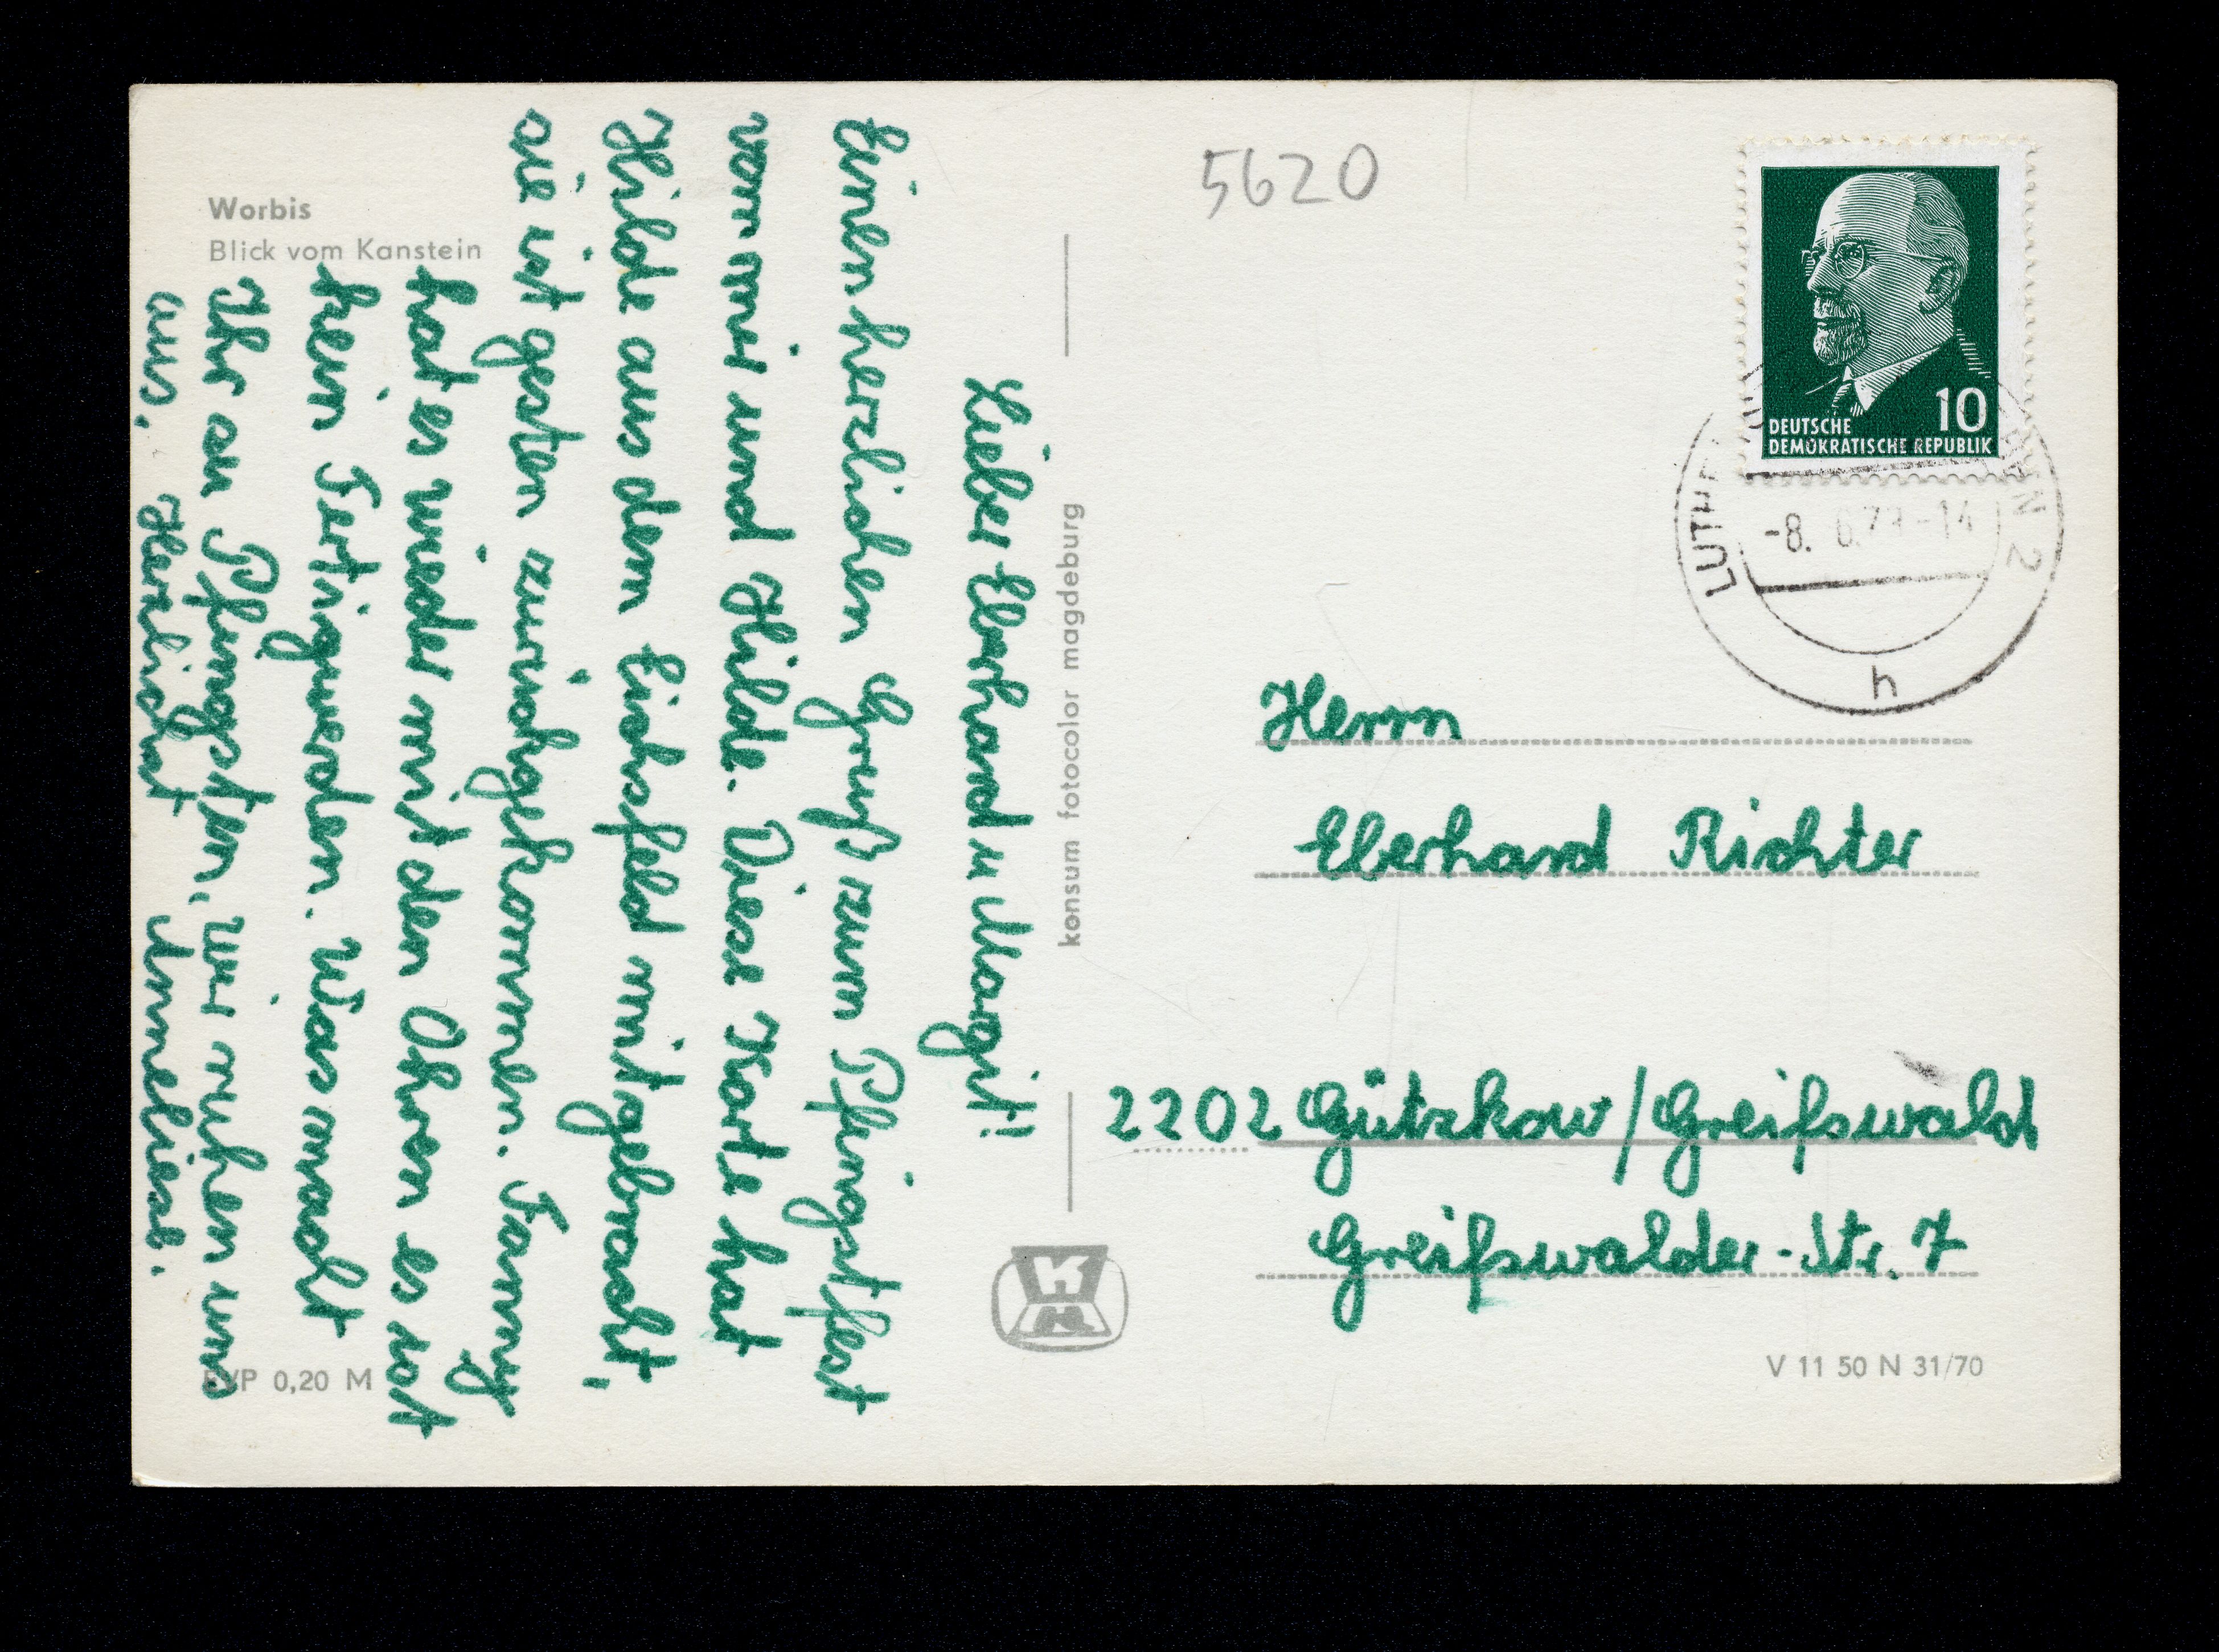 Worbis
Blick vom Kanstein
Lieber Eberhard u Margit!
Einen herzlichen Gruß zum Pfingstfest
von mir und Hilde. Diese Karte hat
Hilde aus dem Eichsfeld mitgebracht,
sie ist gestern zurückgekommen. Fanny
hat es wieder mit den Ohren es ist
kein Fertigwerden. Was macht
Ihr an Pfingsten, wir ruhen uns
aus. Herzlichst Anneliese.
EVP 0,20 M
konsum fotocolor magdeburg
5620
10
DEUTSCHE
DEMOKRATISCHE REPUBLIK
-8. 6.
-14
h
Herrn
Eberhard Richter
2202 Gützkow/Greifswald
Greifswalder-Str. 7
V 11 50 N 31/70